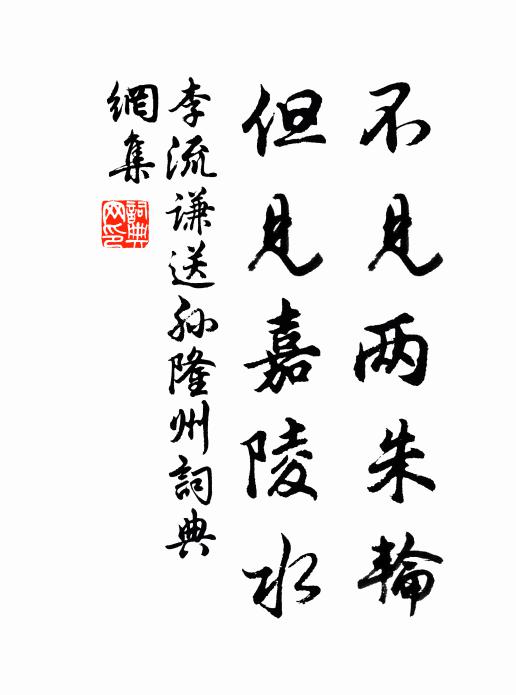 不見两朱輪
但見嘉陵水
李流謙送孙隆州詞典
網集
詞典網印